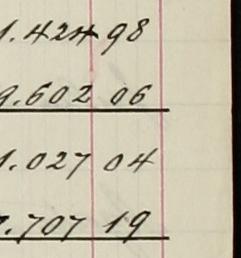 1.424 98
9.602 06
1.027 04
7.707 19